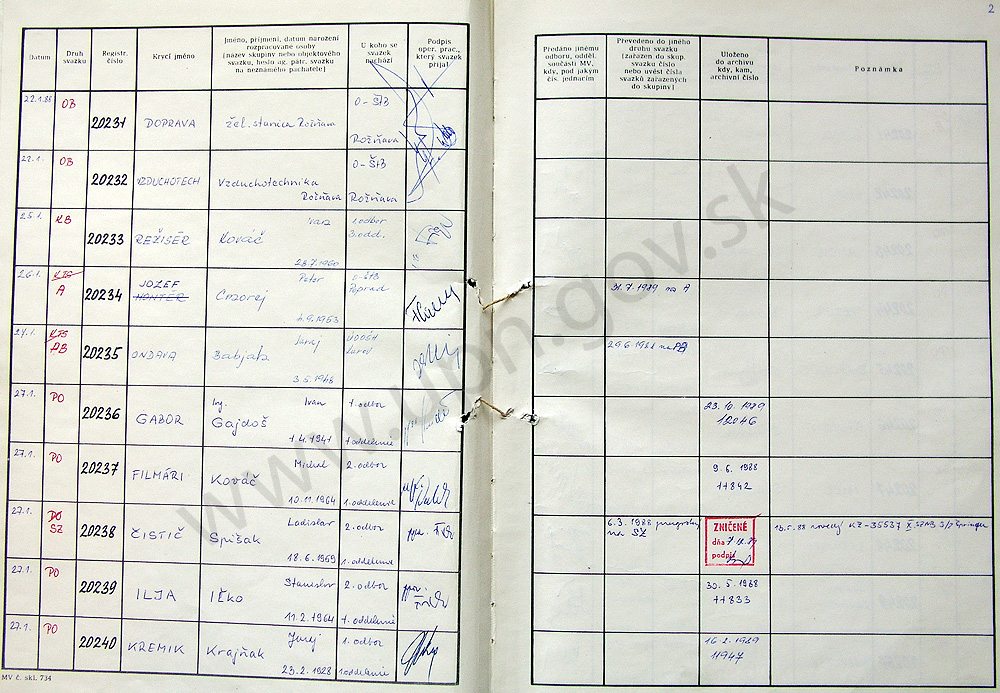 2
Datum
Druh svazku
Registr. číslo
Krycí jméno
Jméno, příjmení, datum narození rozpracované osoby (název skupiny nebo objektového svazku, heslo ag. pátr. svazku na neznámého pachatele)
U koho se svazek nachází
Podpis oper. prac., který svazek přijal
Předáno jinému odboru, odděl. součásti MV, kdy, pod jakým čís. jednacím
Převedeno do jiného druhu svazku (zařazen do skup. svazku číslo nebo uvést čísla svazků zařazených do skupiny)
Uloženo do archivu kdy, kam, archivní číslo
Poznámka
22.1.88 OB 20231 DOPRAVA žel. stanica Rožňava O-ŠtB Rožňava
22.1. OB 20232 VZDUCHOTECH Vzduchotechnika Rožňava O-ŠtB Rožňava
25.1. KB 20233 REŽISÉR Kováč Ivan 28.7.1960 1.odbor 3.odd.
26.1. KTS A 20234 JOZEF HONTER Peter 4.9.1953 O-ŠtB Poprad 31.7.1989 na A
27.1. KTS PB 20235 ONDAVA Babjak Juraj 3.5.1968 na PB
27.1. PO 20236 GABOR Ing. Ivan Gajdoš 1.4.1941 1.odbor 1.oddelenie 23.10.1989 12046
27.1. PO 20237 FILMÁRI Michal Kováč 10.11.1964 2.odbor 1.oddelenie 9.6.1988 11842
27.1. PO SZ 20238 ČISTIČ Ladislav Spišak 18.6.1969 2.odbor 1.oddelenie 6.3.1988 na SZ ZNIČENÉ dňa podpis
27.1. PO 20239 ILJA Stanislav Iľko 11.2.1964 2.odbor 1.oddelenie 30.5.1988 11833
27.1. PO 20240 KREMIK Juraj Krajňak 23.2.1928 1.odbor 1.oddelenie 16.2.1989 11947
MV č. skl. 734
www.upn.gov.sk